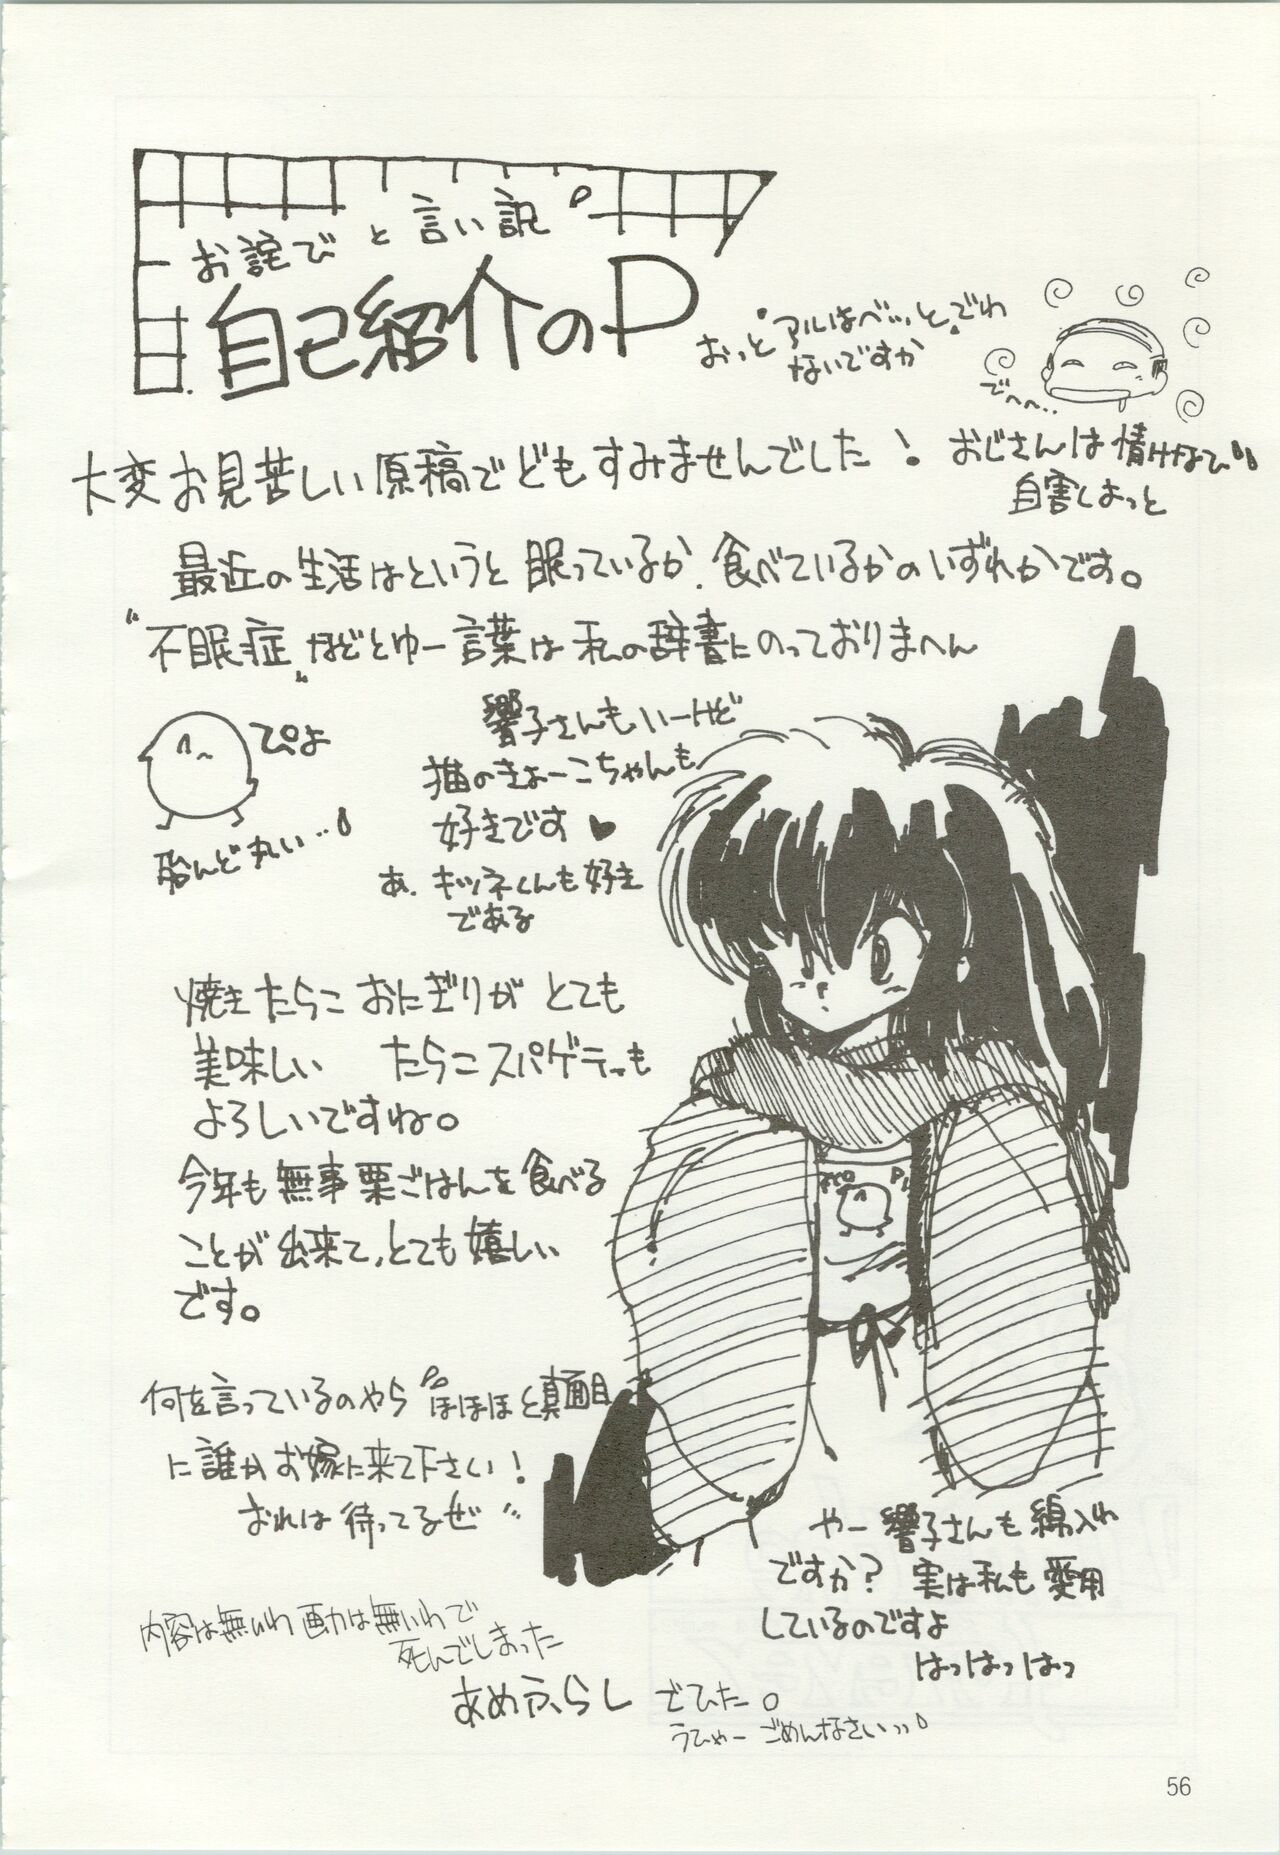 お詫びと言い訳
自己紹介のP
おっと"アルはべ…と"でわ
ないですか
でへへ‥
大変お見苦しい原稿でどもすみませんでした！
おじさんは情けなひ
自害しまっと
最近の生活はというと眠っているか、食べているかのいずれかです。
"不眠症"などとゆー言葉は私の辞書にのっておりまへん
ぴよ
殆んど丸い…
響子さんもいーけど
猫のきょーこちゃんも
好きです♥
あ、キツネくんも好き
である
焼きたらこおにぎりがとても
美味しい たらこスパゲティも
よろしいですね。
今年も無事栗ごはんを食べる
ことが出来て、とても嬉しい
です。
何を言っているのやら ほほほと真面目
に誰かお嫁に来て下さい！
おれは待ってるぜ
やー響子さんも綿入れ
ですか？実は私も愛用
しているのですよ
はっはっはっ
内容は無いわ画力は無いわで
死んでしまった
あめふらし でひた。
うひゃーごめんなさいッッ
56